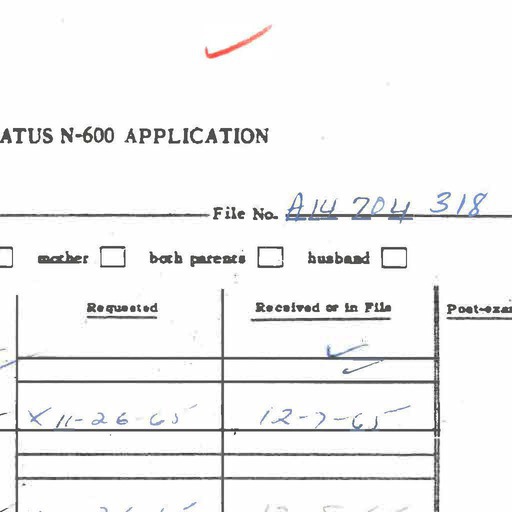 ATUS N-600 APPLICATION
File No. A14 704 318
mother both parents husband
Requested Received or in File Post-exa
X 11-26-65 12-7-65